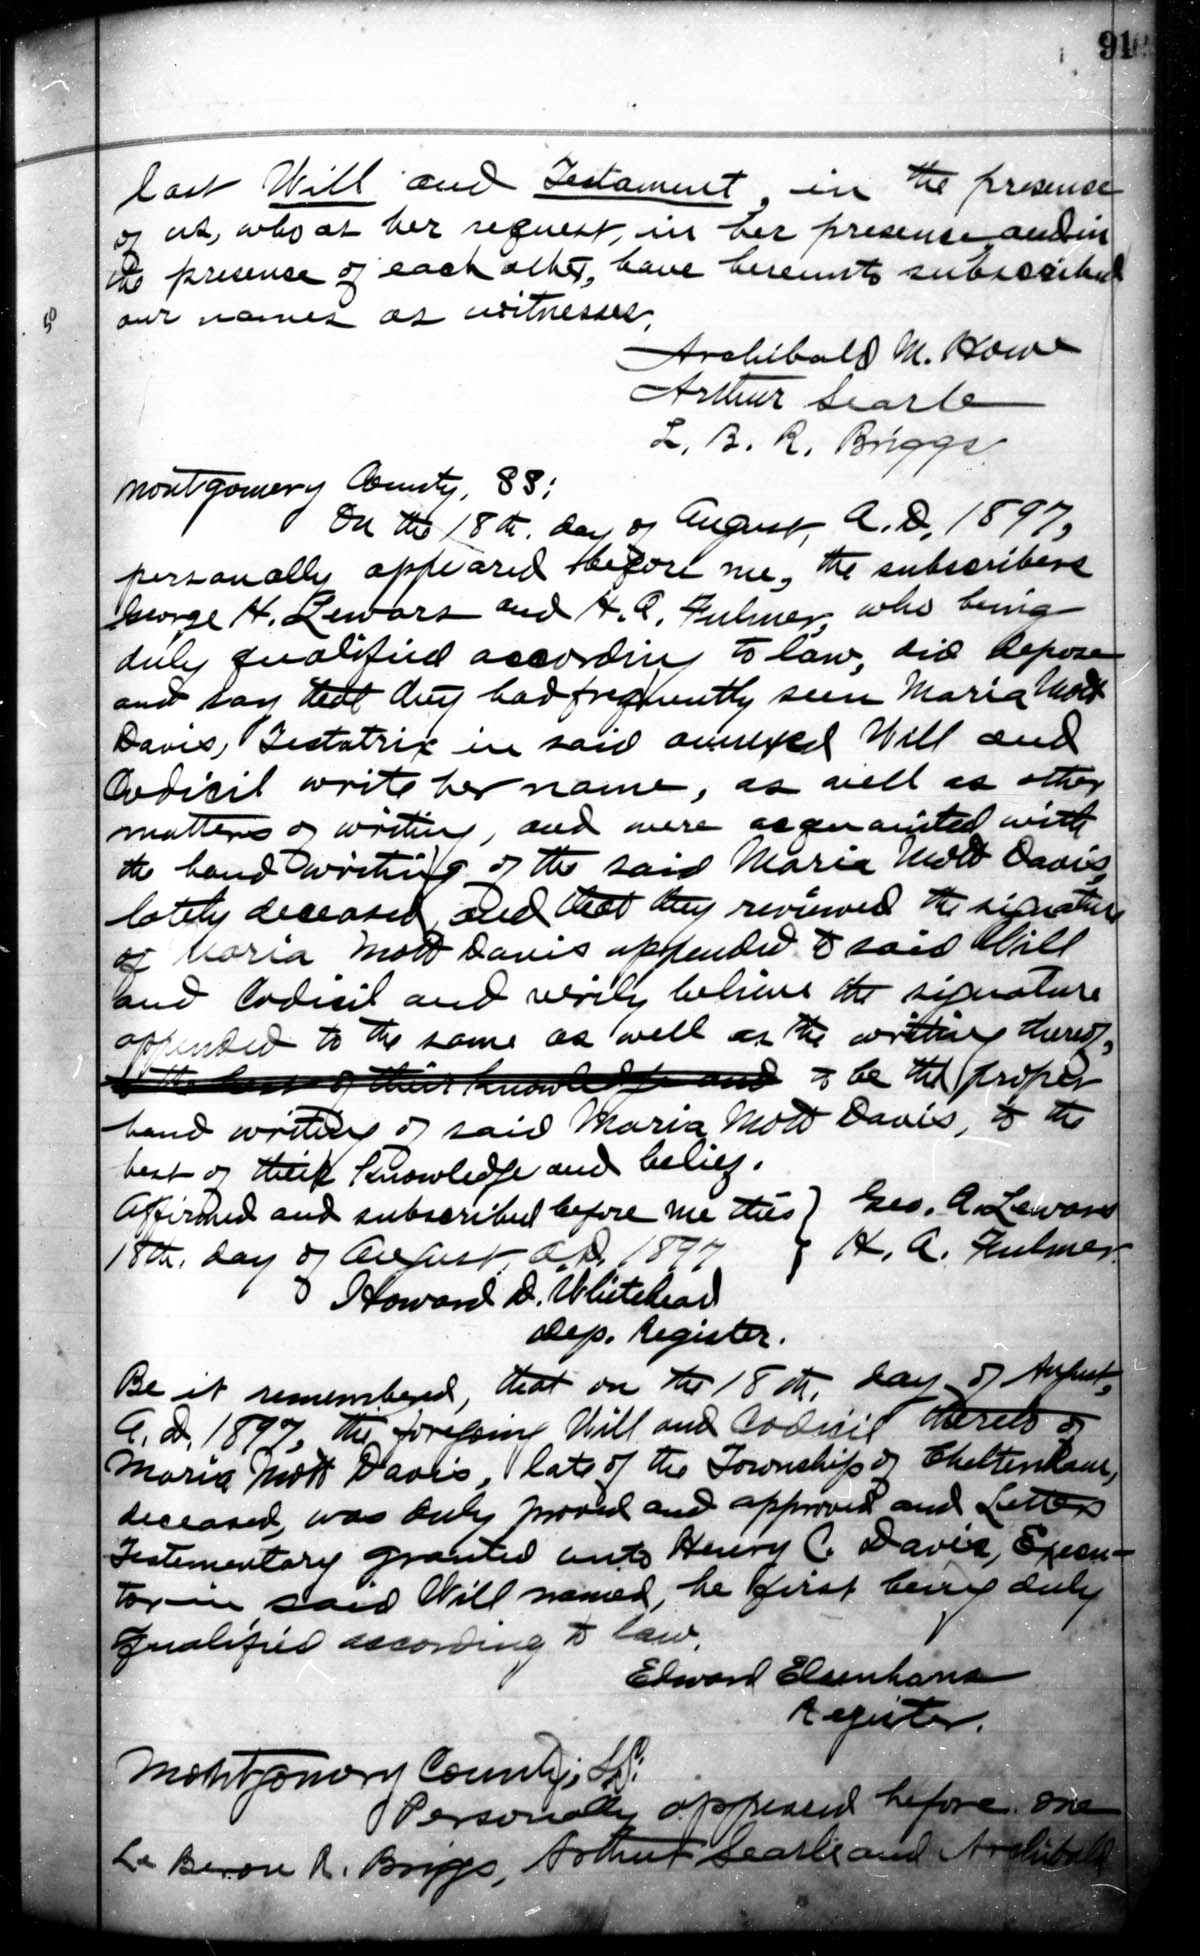 91
last Will and Testament, in the presence
of us, who at her request, in her presence and in
the presence of each other, have hereunto subscribed
our names as witnesses.
50
Archibald M. Howe
Arthur Searle
L. B. R. Briggs.
Montgomery County, SS:
On the 18th. day of August, A.D. 1897,
personally appeared before me, the subscribers
George H. Lewars and H. A. Fulmer, who being
duly qualified according to law, did depose
and say that they had frequently seen Maria Mott
Davis, Testatrix in said annexed Will and
Codicil write her name, as well as other
matters of writing, and were acquainted with
the hand writing of the said Maria Mott Davis,
lately deceased, and that they reviewed the signature
of Maria Mott Davis appended to said Will
and Codicil and verily believe the signature
appended to the same as well as the writing thereof,
to the best of their knowledge and to be the proper
hand writing of said Maria Mott Davis, to the
best of their knowledge and belief.
Affirmed and subscribed before me this } Geo. A. Lewars
18th. day of August, A.D. 1897 } H. A. Fulmer.
Howard D. Whitehead
Dep. Register.
Be it remembered, that on the 18th. day of August,
A.D. 1897, the foregoing Will and Codicil thereto of
Maria Mott Davis, late of the Township of Cheltenham,
deceased, was duly proved and approved and Letters
Testementary granted unto Henry C. Davis, Execu-
tor in said Will named, he first being duly
qualified according to law.
Edward Eisenhans
Register.
Montgomery County, SS:
Personally appeared before me
Le Baron R. Briggs, Arthur Searle and Archibald